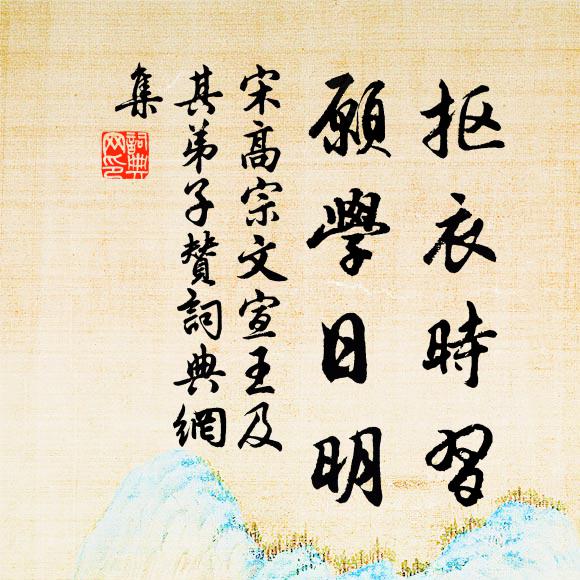 抠衣時習
願學日明
宋高宗文宣王及
其弟子贊詞典網
集
詞典網印